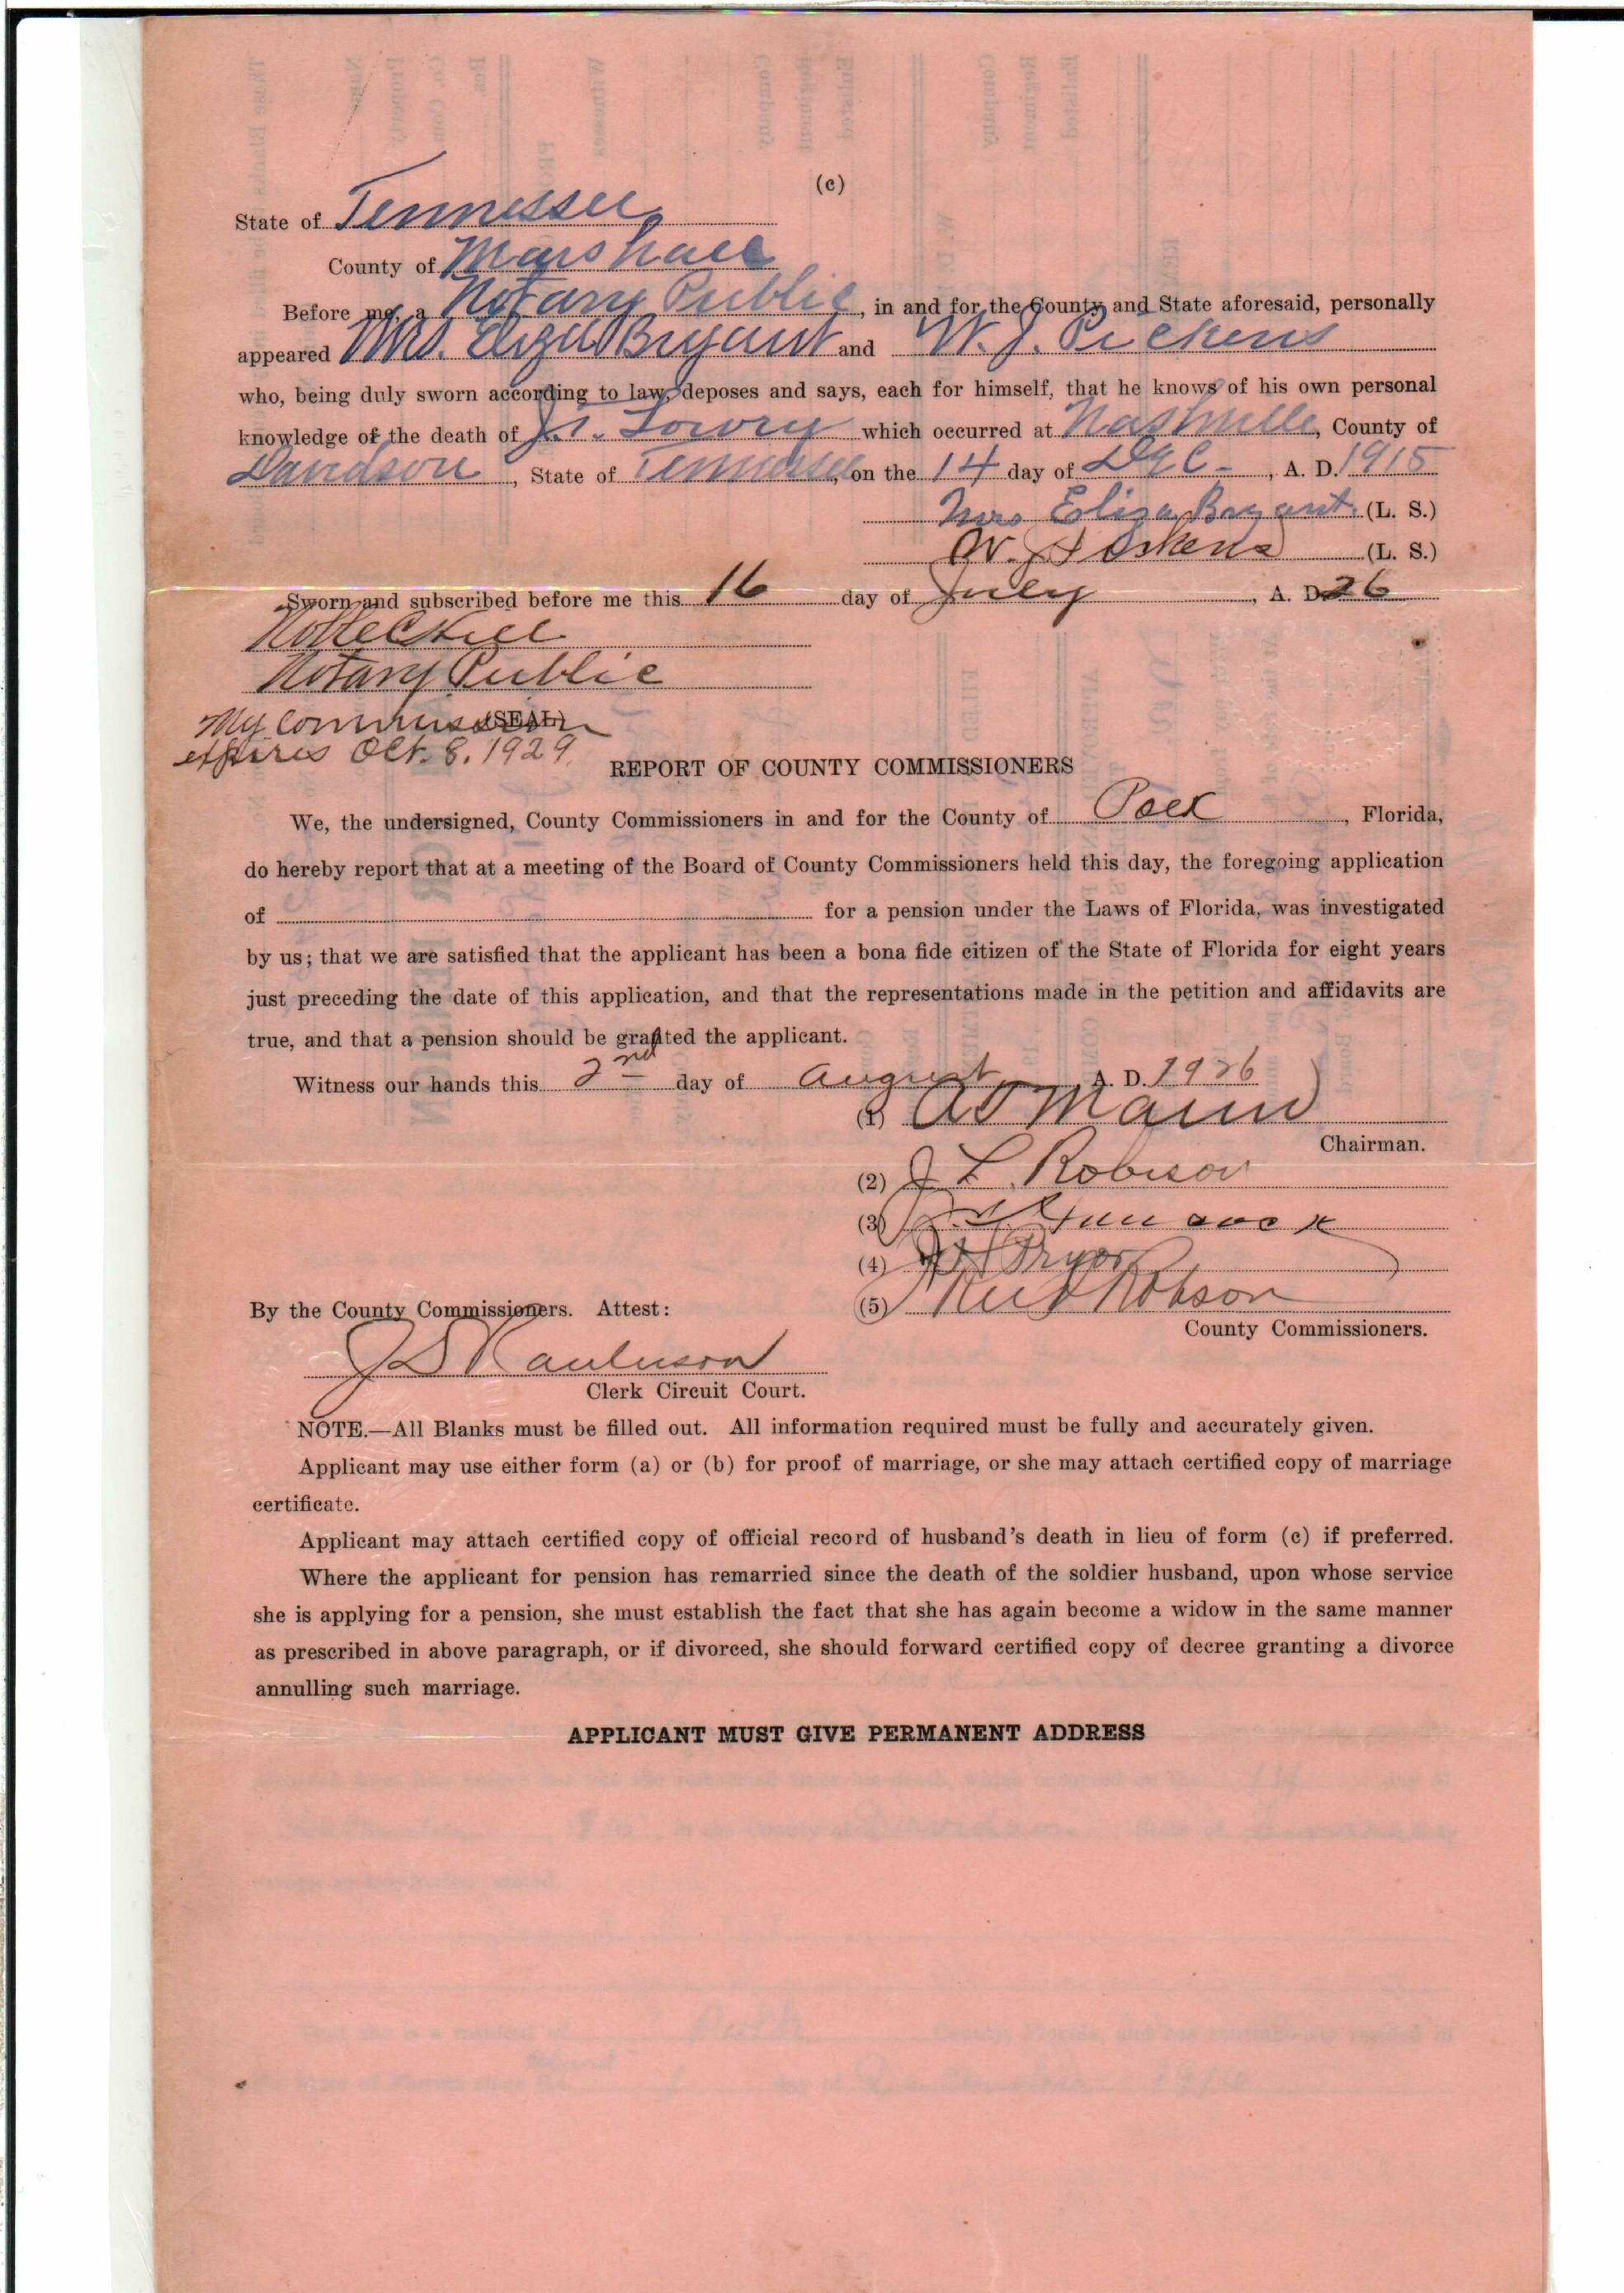 (c)
State of Tennessee
County of Marshall
Before me, a Notary Public, in and for the County and State aforesaid, personally
appeared Mrs. Eliza Bryant and W. J. Pickens
who, being duly sworn according to law, deposes and says, each for himself, that he knows of his own personal
knowledge of the death of J. T. Lowry which occurred at Nashville, County of
Davidson, State of Tennessee, on the 14 day of Dec -, A. D. 1915
Mrs Eliza Bryant. (L. S.)
W. J. Pickens (L. S.)
Sworn and subscribed before me this 16 day of July, A. D. 26
Notary Public
My Commission (SEAL)
expires Oct. 8. 1929.
REPORT OF COUNTY COMMISSIONERS
We, the undersigned, County Commissioners in and for the County of Polk, Florida,
do hereby report that at a meeting of the Board of County Commissioners held this day, the foregoing application
of for a pension under the Laws of Florida, was investigated
by us; that we are satisfied that the applicant has been a bona fide citizen of the State of Florida for eight years
just preceding the date of this application, and that the representations made in the petition and affidavits are
true, and that a pension should be granted the applicant.
Witness our hands this 2nd day of August A. D. 1926
(1) A T Mann
Chairman.
(2) J L Robison
(3)
(4) Pryor
(5) Robson
County Commissioners.
By the County Commissioners. Attest:
J D Raulerson
Clerk Circuit Court.
NOTE.—All Blanks must be filled out. All information required must be fully and accurately given.
Applicant may use either form (a) or (b) for proof of marriage, or she may attach certified copy of marriage
certificate.
Applicant may attach certified copy of official record of husband's death in lieu of form (c) if preferred.
Where the applicant for pension has remarried since the death of the soldier husband, upon whose service
she is applying for a pension, she must establish the fact that she has again become a widow in the same manner
as prescribed in above paragraph, or if divorced, she should forward certified copy of decree granting a divorce
annulling such marriage.
APPLICANT MUST GIVE PERMANENT ADDRESS